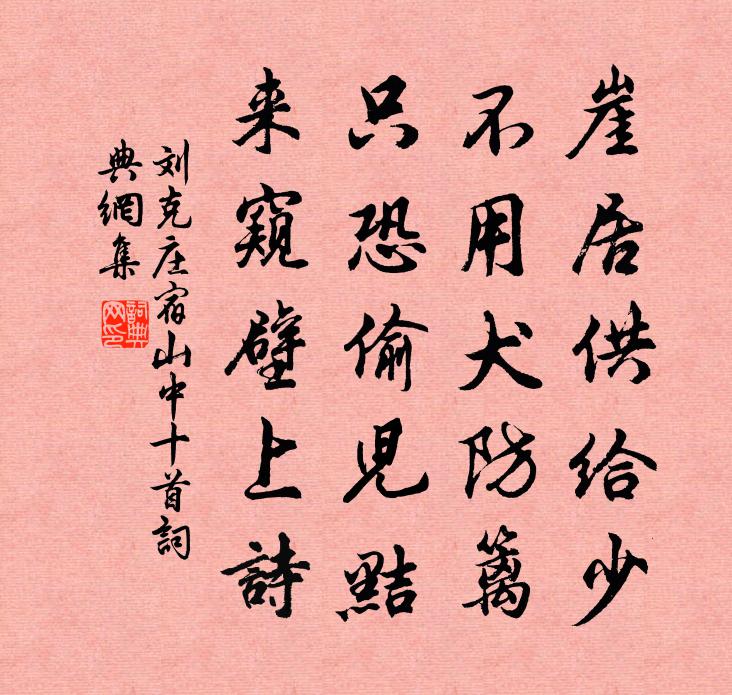 崖居供给少
不用犬防篱
只恐偷児黠
来窥壁上詩
刘克庄宿山中十首詞
典網集
詞典网印